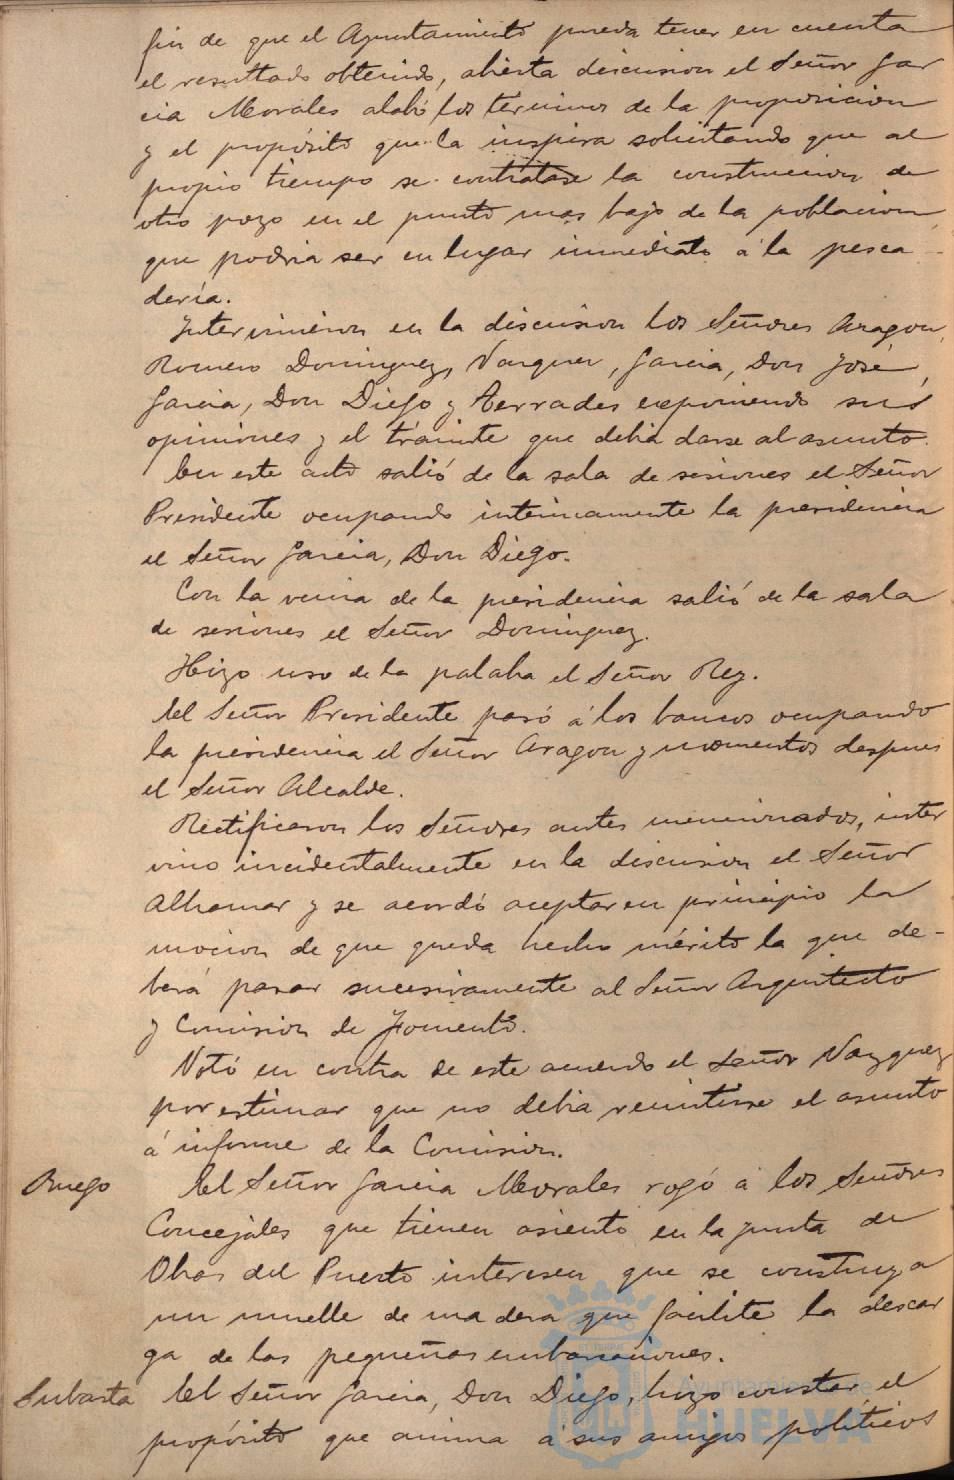 fin de que el Ayuntamiento pueda tener en cuenta
el resultado obtenido, abierta discusion el Señor Gar
cia Morales alabó los terminos de la proposicion
y el propósito que la inspira solicitando que al
propio tiempo se contratase la construccion de
otro pozo en el punto mas bajo de la poblacion
que podria ser en lugar inmediato á la pesca
dería.
Intervinieron en la discusion los Señores Aragon,
Romero Dominguez, Vazquez, Garcia, Don José,
Garcia, Don Diego y Terrades exponiendo sus
opiniones y el trámite que debia darse al asunto.
En este acto salió de la sala de sesiones el Señor
Presidente ocupando interinamente la presidencia
el Señor Garcia, Don Diego.
Con la venia de la presidencia salió de la sala
de sesiones el Señor Dominguez.
Hizo uso de la palaba el Señor Rey.
El Señor Presidente pasó á los bancos ocupando
la presidencia el Señor Aragon y momentos despues
el Señor Alcalde.
Rectificaron los Señores antes mencionados, inter
vino incidentalmente en la discusion el Señor
Alhamar y se acordó aceptar en principio la
mocion de que queda hecho mérito la que de-
berá pasar sucesivamente al Señor Arquitecto
y Comision de Fomento.
Votó en contra de este acuerdo el Señor Vazquez
por estimar que no debia remitirse el asunto
á informe de la Comision.
Ruego El Señor Garcia Morales rogó á los Señores
Concejales que tienen asiento en la Junta de
Obras del Puerto interesen que se construya
un muelle de madera que facilite la descar
ga de las pequeñas embarcaciones.
Subasta El Señor Garcia, Don Diego, hizo constar el
propósito que anima á sus amigos políticos
Ayuntamiento de
HUELVA